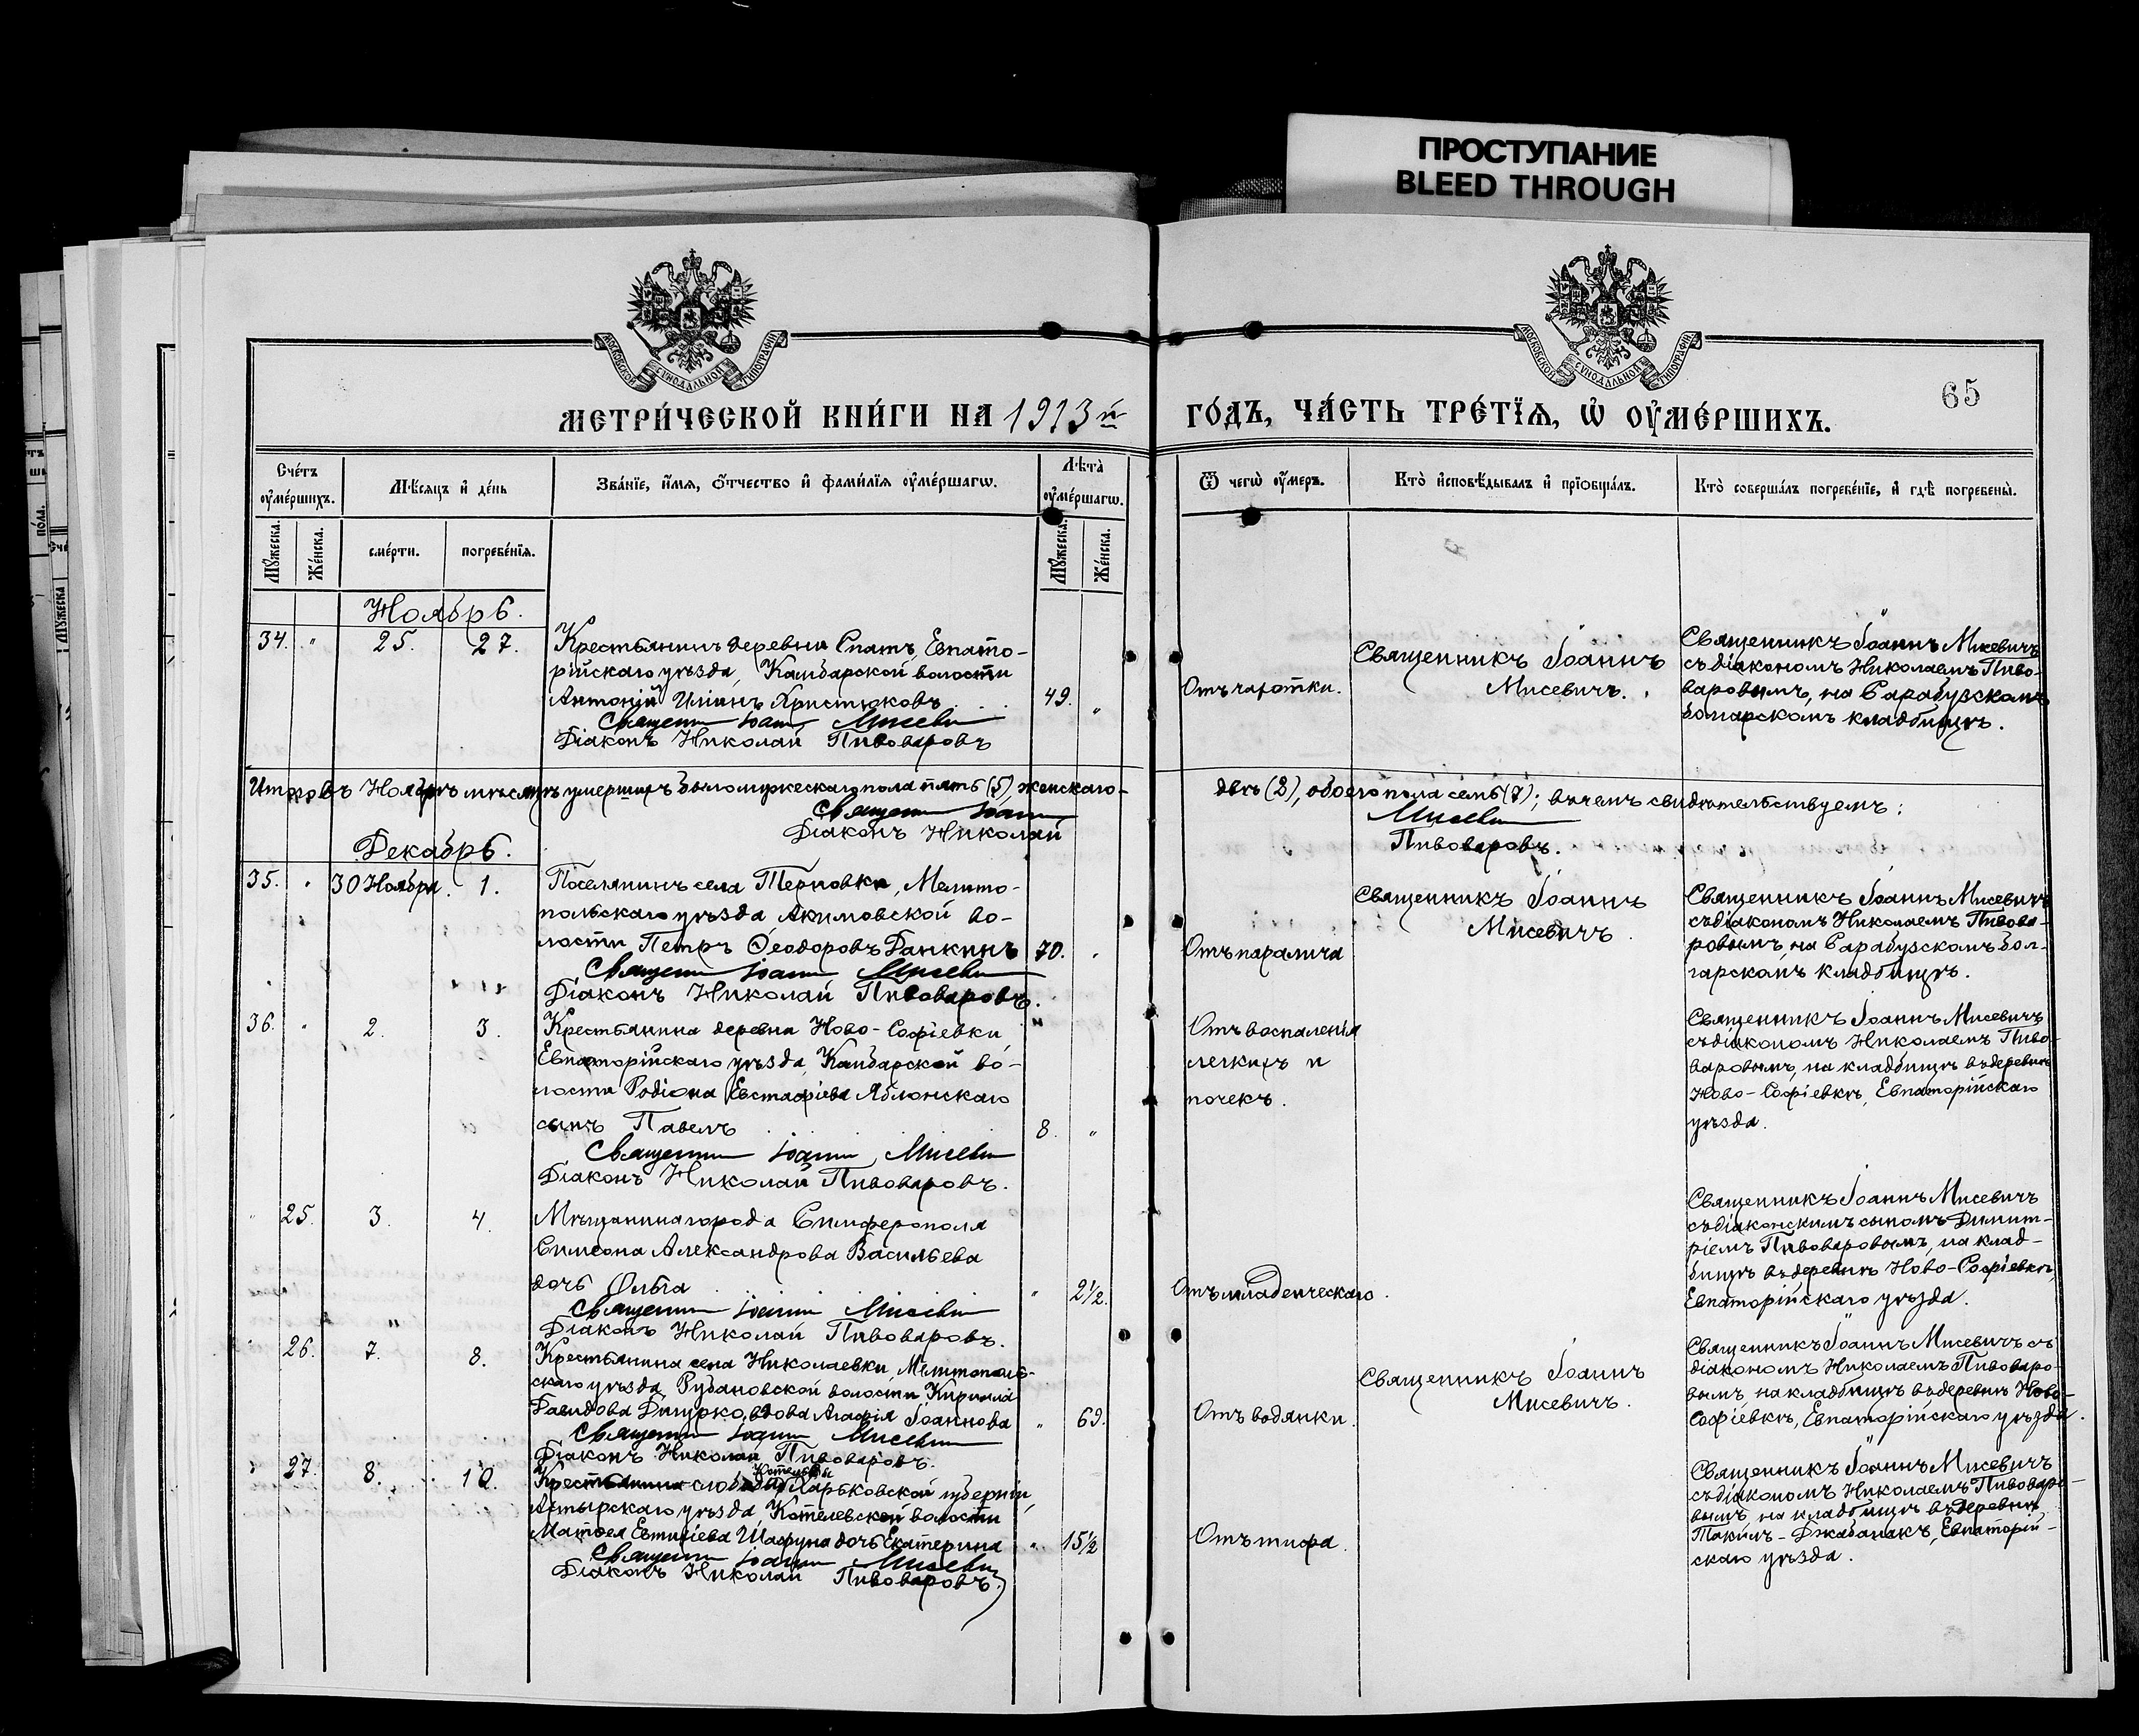 ПРОСТУПАНИЕ
BLEED THROUGH
МОСКОВСКОЙ СѴНОДАЛЬНОЙ ТИПОГРАФІИ
МОСКОВСКОЙ СѴНОДАЛЬНОЙ ТИПОГРАФІИ
65
МЕТРИ́ЧЕСКОЙ КНИ́ГИ НА 1913й
ГО́ДЪ, ЧА́СТЬ ТРЕ́ТЇѦ, Ѡ҆ ОУ҆МЕ́РШИХЪ.
Сче́тъ оу҆ме́ршихъ.
Мѣ́сяцъ и҆ де́нь
Зва́нїе, и҆́мя, ѻ҆́тчество и҆ фами́лїя оу҆ме́ршагѡ.
Лѣта̀ оу҆ме́ршагѡ.
Ѿ чегѡ̀ оу҆́меръ.
Кто̀ и҆сповѣ́дывалъ и҆ прїѡбща́лъ.
Кто̀ соверша́лъ погребе́нїе, и҆ гдѣ̀ погребены̀.
Мꙋ́жеска.
Же́нска.
сме́рти.
погребе́нїя.
Мꙋ́жеска.
Же́нска.
Ноябрь.
34. " 25. 27.
Крестьянинъ деревни Спатъ, Евпато-
рійскаго уѣзда, Камбарской волости
Антоній Иліинъ Христюковъ 49. "
Священн Іоанн Мисеви
Діаконъ Николай Пивоваровъ
Отъ чахотки.
Священникъ Іоаннъ
Мисевичъ.
Священникъ Іоаннъ Мисевичъ
съ діакономъ Николаемъ Пиво-
варовымъ, на Сарабузскомъ
болгарскомъ кладбищѣ.
Итого въ Ноябрѣ мѣсяцѣ умершихъ было мужескаго пола пять (5), женскаго-
двѣ (2), обоего пола семь (7); въ чемъ свидѣтельствуемъ:
Священн Іоанн Мисеви
Діаконъ Николай Пивоваровъ.
Декабрь.
35. " 30 Ноября. 1.
Поселянинъ села Терновки, Мелито-
польскаго уѣзда Акимовской во-
лости Петръ Ѳеодоровъ Данкинъ 70. "
Священн Іоанн Мисеви
Діаконъ Николай Пивоваровъ.
Отъ паралича
Священникъ Іоаннъ
Мисевичъ.
Священникъ Іоаннъ Мисевичъ
съ діакономъ Николаемъ Пивова-
ровымъ, на Сарабузскомъ бол-
гарскомъ кладбищѣ.
36. " 2. 3.
Крестьянина деревни Ново-Софіевки,
Евпаторійскаго уѣзда, Камбарской во-
лости Родіона Евстафіева Яблонскаго
сынъ Павелъ 8. "
Священн Іоанн Мисеви
Діаконъ Николай Пивоваровъ.
Отъ воспаленія
легкихъ и
почекъ.
Священникъ Іоаннъ Мисевичъ
съ діакономъ Николаемъ Пиво-
варовымъ, на кладбищѣ въ деревнѣ
Ново-Софіевкѣ, Евпаторійскаго
уѣзда.
" 25. 3. 4.
Мѣщанина города Симферополя
Симеона Александрова Васильева
дочь Ольга " 2½.
Священн Іоанн Мисеви
Діаконъ Николай Пивоваровъ.
Отъ младенческаго.
Священникъ Іоаннъ Мисевичъ
съ діаконскимъ сыномъ Димит-
ріемъ Пивоваровымъ, на клад-
бищѣ въ деревнѣ Ново-Софіевкѣ,
Евпаторійскаго уѣзда.
" 26. 7. 8.
Крестьянина села Николаевки, Мелитополь-
скаго уѣзда, Рубановской волости Кирилла
Давидова Дмурко, вдова Агафія Іоаннова " 69.
Священн Іоанн Мисеви
Діаконъ Николай Пивоваровъ.
Отъ водянки.
Священникъ Іоаннъ
Мисевичъ.
Священникъ Іоаннъ Мисевичъ съ
діакономъ Николаемъ Пивоваро-
вымъ, на кладбищѣ въ деревнѣ Ново-
Софіевкѣ, Евпаторійскаго уѣзда.
" 27. 8. 10.
Котельвы
Крестьянина слободы Харьковской губерніи,
Ахтырскаго уѣзда, Котелевской волости
Матѳея Евтихіева Шафуна дочь Екатерина " 15½
Священн Іоанн Мисеви
Діаконъ Николай Пивоваровъ.
Отъ тифа.
Священникъ Іоаннъ Мисевичъ
съ діакономъ Николаемъ Пивоваро-
вымъ, на кладбищѣ въ деревнѣ
Такилъ-Джабанакъ, Евпаторій-
скаго уѣзда.